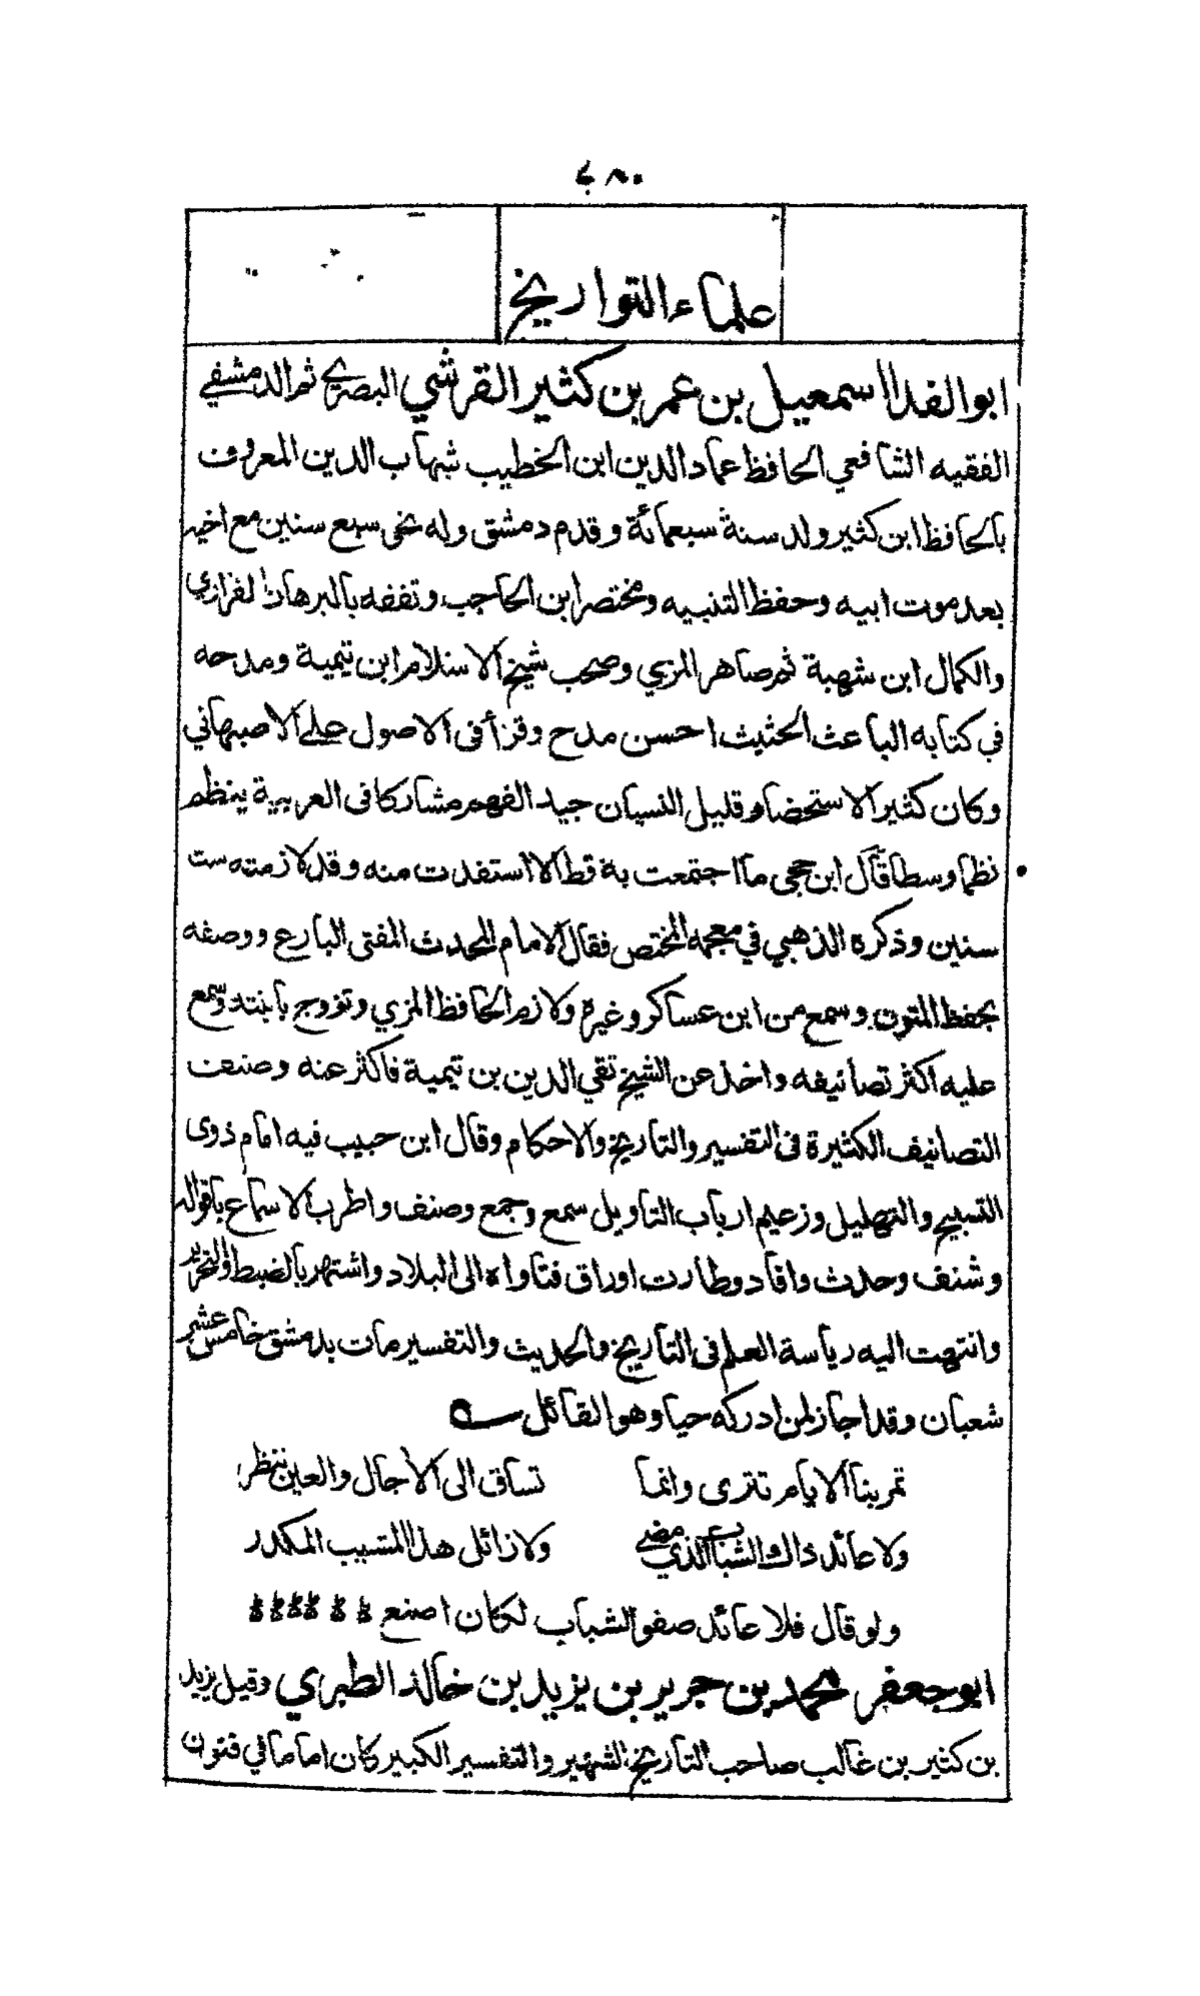 علماء التواريخ
ابو الفدا اسمعيل بن عمر بن كثير القرشي البصري ثم الدمشقي
الفقيه الشافعي الحافظ عماد الدين ابن الخطيب شهاب الدين المعروف
بالحافظ ابن كثير ولد سنة سبعمائة وقدم دمشق وله نحى سبع سنين مع اخيه
بعد موت ابيه وحفظ التنبيه ومختصر ابن الحاجب وتفقه بالبرهان الفزاري
والكمال ابن شهبة ثم صاهر المزي وصحب شيخ الاسلام ابن تيمية ومدحه
في كتابه الباعث الحثيث احسن مدح وقرأ فى الاصول على الاصبهاني
وكان كثير الاستحضار قليل النسيان جيد الفهم مشاركا فى العربية ينظم
نظما وسطا قال ابن حجى ما اجتمعت به قط الا استفدت منه وقد لازمته ست
سنين وذكره الذهبي في معجمه المختص فقال الامام المحدث المفتى البارع ووصفه
بحفظ المتون وسمع من ابن عساكر وغيره ولازم الحافظ المزي وتزوج بابنته وسمع
عليه اكثر تصانيفه واخذ عن الشيخ تقي الدين بن تيمية فاكثر عنه وصنف
التصانيف الكثيرة فى التفسير والتاريخ والاحكام وقال ابن حبيب فيه امام ذوى
التسبيح والتهليل وزعيم ارباب التاويل سمع وجمع وصنف واطرب الاسماع باقواله
وشنف وحدث وافاد وطارت اوراق فتاواه الى البلاد واشتهر بالضبط والتحرير
وانتهت اليه رياسة العلم فى التاريخ والحديث والتفسير مات بدمشق خامس عشر
شعبان وقد اجاز لمن ادركه حيا وهو القائل
تمر بنا الايام تترى وانما تساق الى الآجال والعين تنظر
ولا عائد ذاك الشباب الذي مضى ولا زائل هذا المشيب المكدر
ولو قال فلا عائد صفو الشباب لكان اصنع
ابو جعفر محمد بن جرير بن يزيد بن خالد الطبري وقيل يزيد
بن كثير بن غالب صاحب التاريخ الشهير والتفسير الكبير كان اماما في فنون